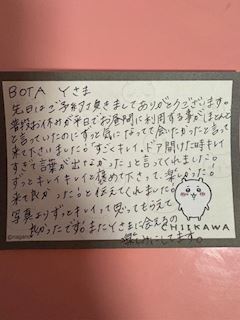 BOTA Yさま
先日はご予約頂きましてありがとうございます。
普段お休みが平日でお昼間に利用する事がほとんど
と言っていたのにずっと気になってて会いたかったと言って
来て下さいました。「すごくキレイ。ドア開けた時キレイ
すぎて言葉が出なかった」と言ってくれました。
ずっとキレイキレイと褒めて下さって、楽しかった。
来て良かった。と伝えてくれました。
写真よりずっとキレイって思ってもらえて
良かったです。またYさまに会えるの
楽しみにしてます。
CHIIKAWA
©nagano